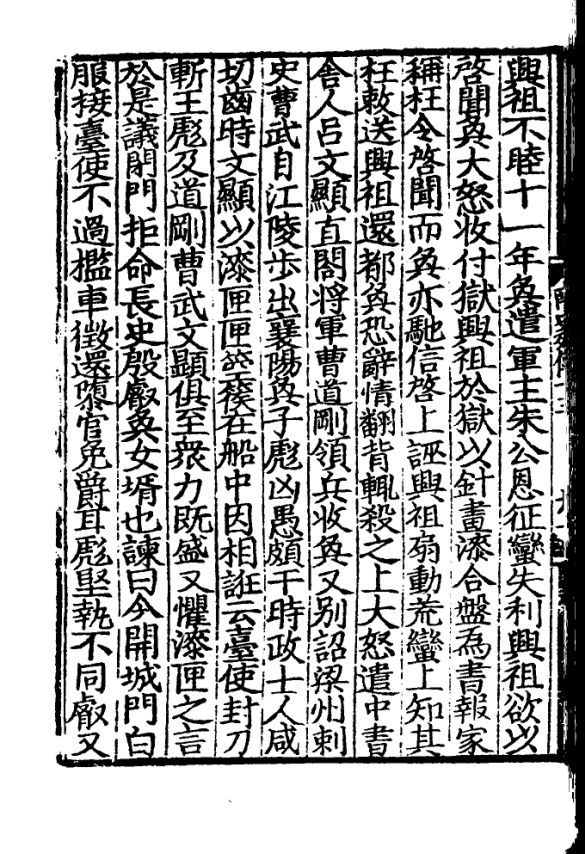 興祖不睦十一年奐遣軍主朱公恩征蠻失利興祖欲以
啓聞奐大怒收付獄興祖於獄以針畫漆合盤為書報家
稱枉令啓聞而奐亦馳信啓上誣興祖扇動荒蠻上知其
枉敕送興祖還都奐恐辭情翻背輒殺之上大怒遣中書
舍人呂文顯直閣將軍曹道剛領兵收奐又別詔梁州刺
史曹武自江陵步出襄陽奐子彪凶愚頗干時政士人咸
切齒時文顯以漆匣匣箜篌在船中因相誑云臺使封刀
斬王彪及道剛曹武文顯俱至衆力既盛又懼漆匣之言
於是議閉門拒命長史殷叡奐女壻也諫曰今開城門白
服接臺使不過檻車徵還隳官免爵耳彪堅執不同叡又